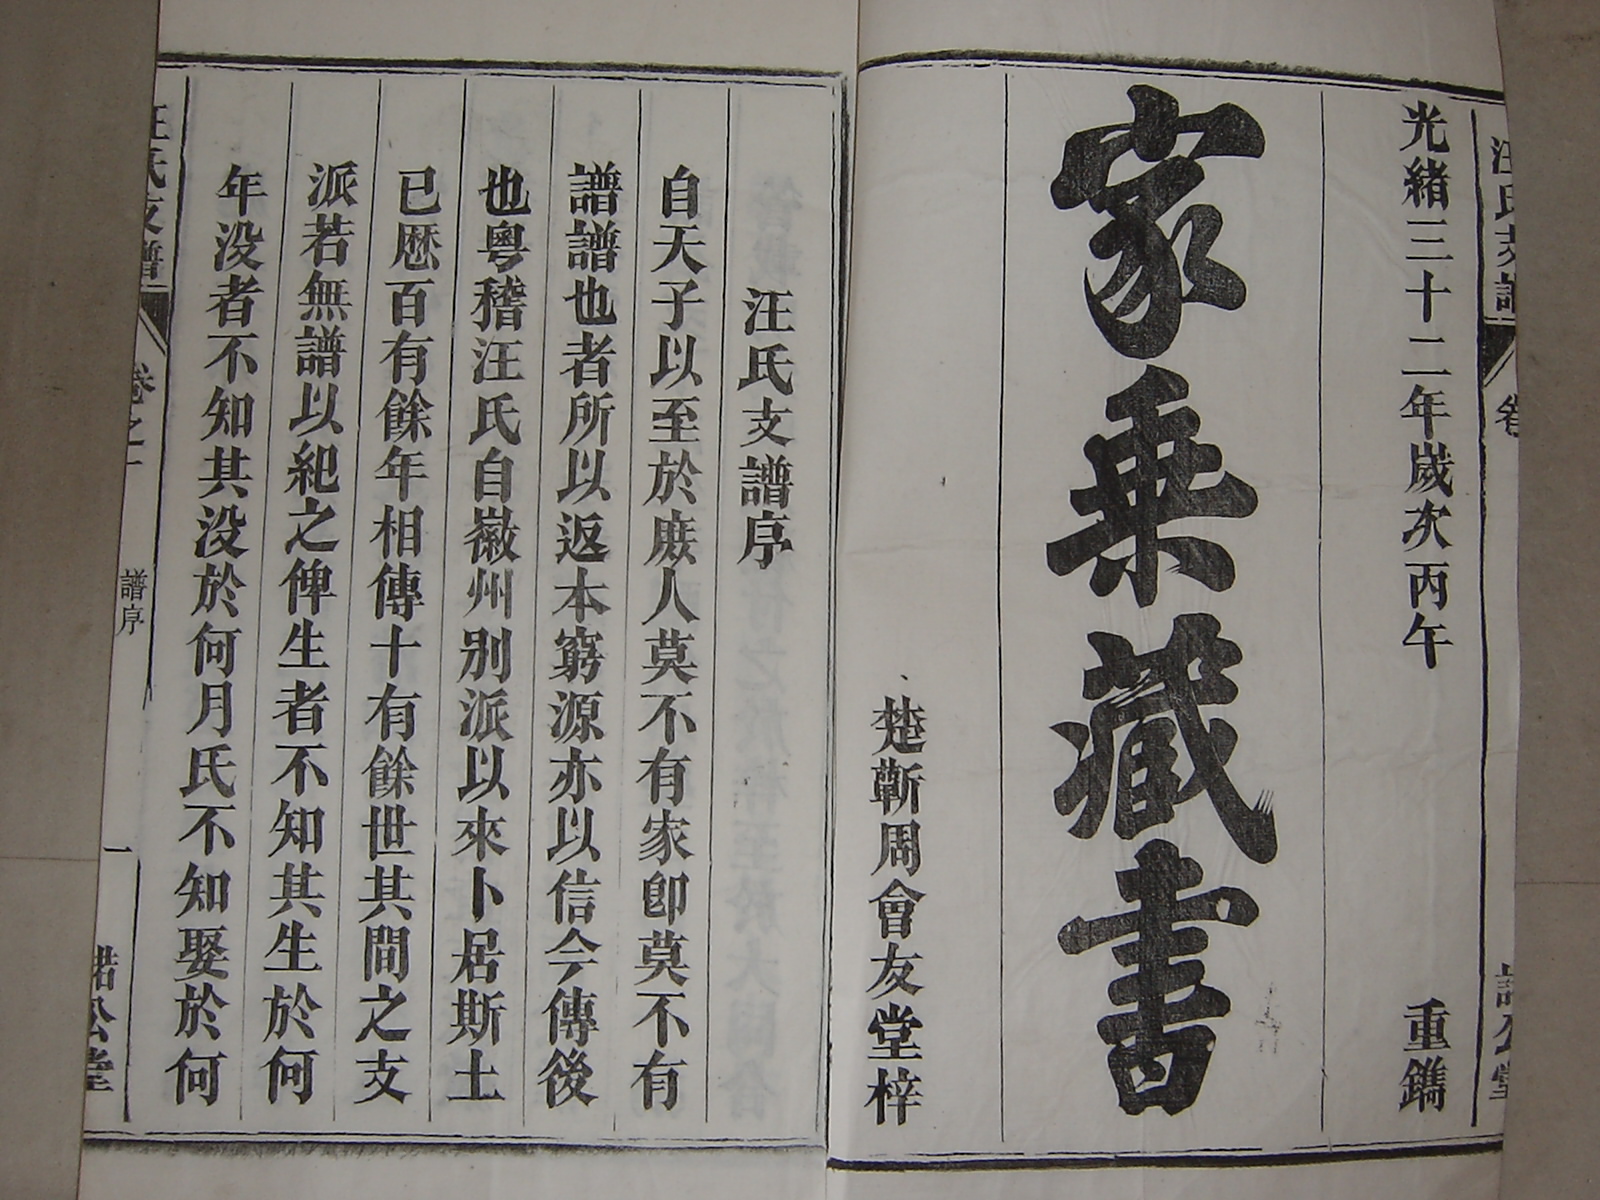 光緒三十二年歲次丙午 重鐫
家乗藏書
楚蘄周會友堂梓
汪氏支譜序
自天子以至於庻人莫不有家卽莫不有
譜譜也者所以返本窮源亦以信今傳後
也粤稽汪氏自徽州别派以來卜居斯土
已厯百有餘年相傳十有餘世其間之支
派若無譜以紀之俾生者不知其生於何
年没者不知其没於何月氏不知娶於何
汪氏支譜 卷之一 譜序 一